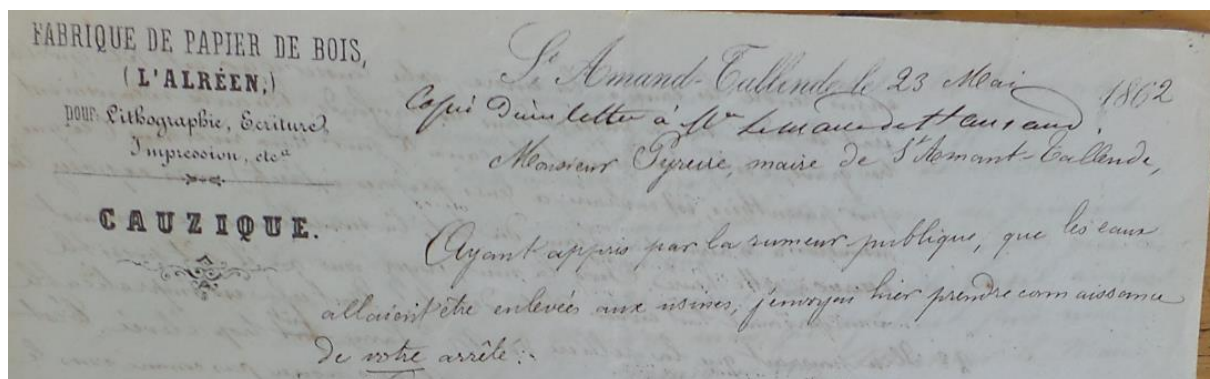 FABRIQUE DE PAPIER DE BOIS,
(L'ALRÉEN,)
pour Lithographie, Ecriture,
Impression, etc.a
CAUZIQUE.
St. Amand-Tallende le 23 Mai 1862
Copie d'une letter à Mr le maire de St amand.
Monsieur Pyreire, maire de St Amant-Tallende,
Ayant appris par la rumeur publique, que les eaux
allaient être enlevées aux usines, j'envoyai hier prendre connaissance
de votre arrêté :